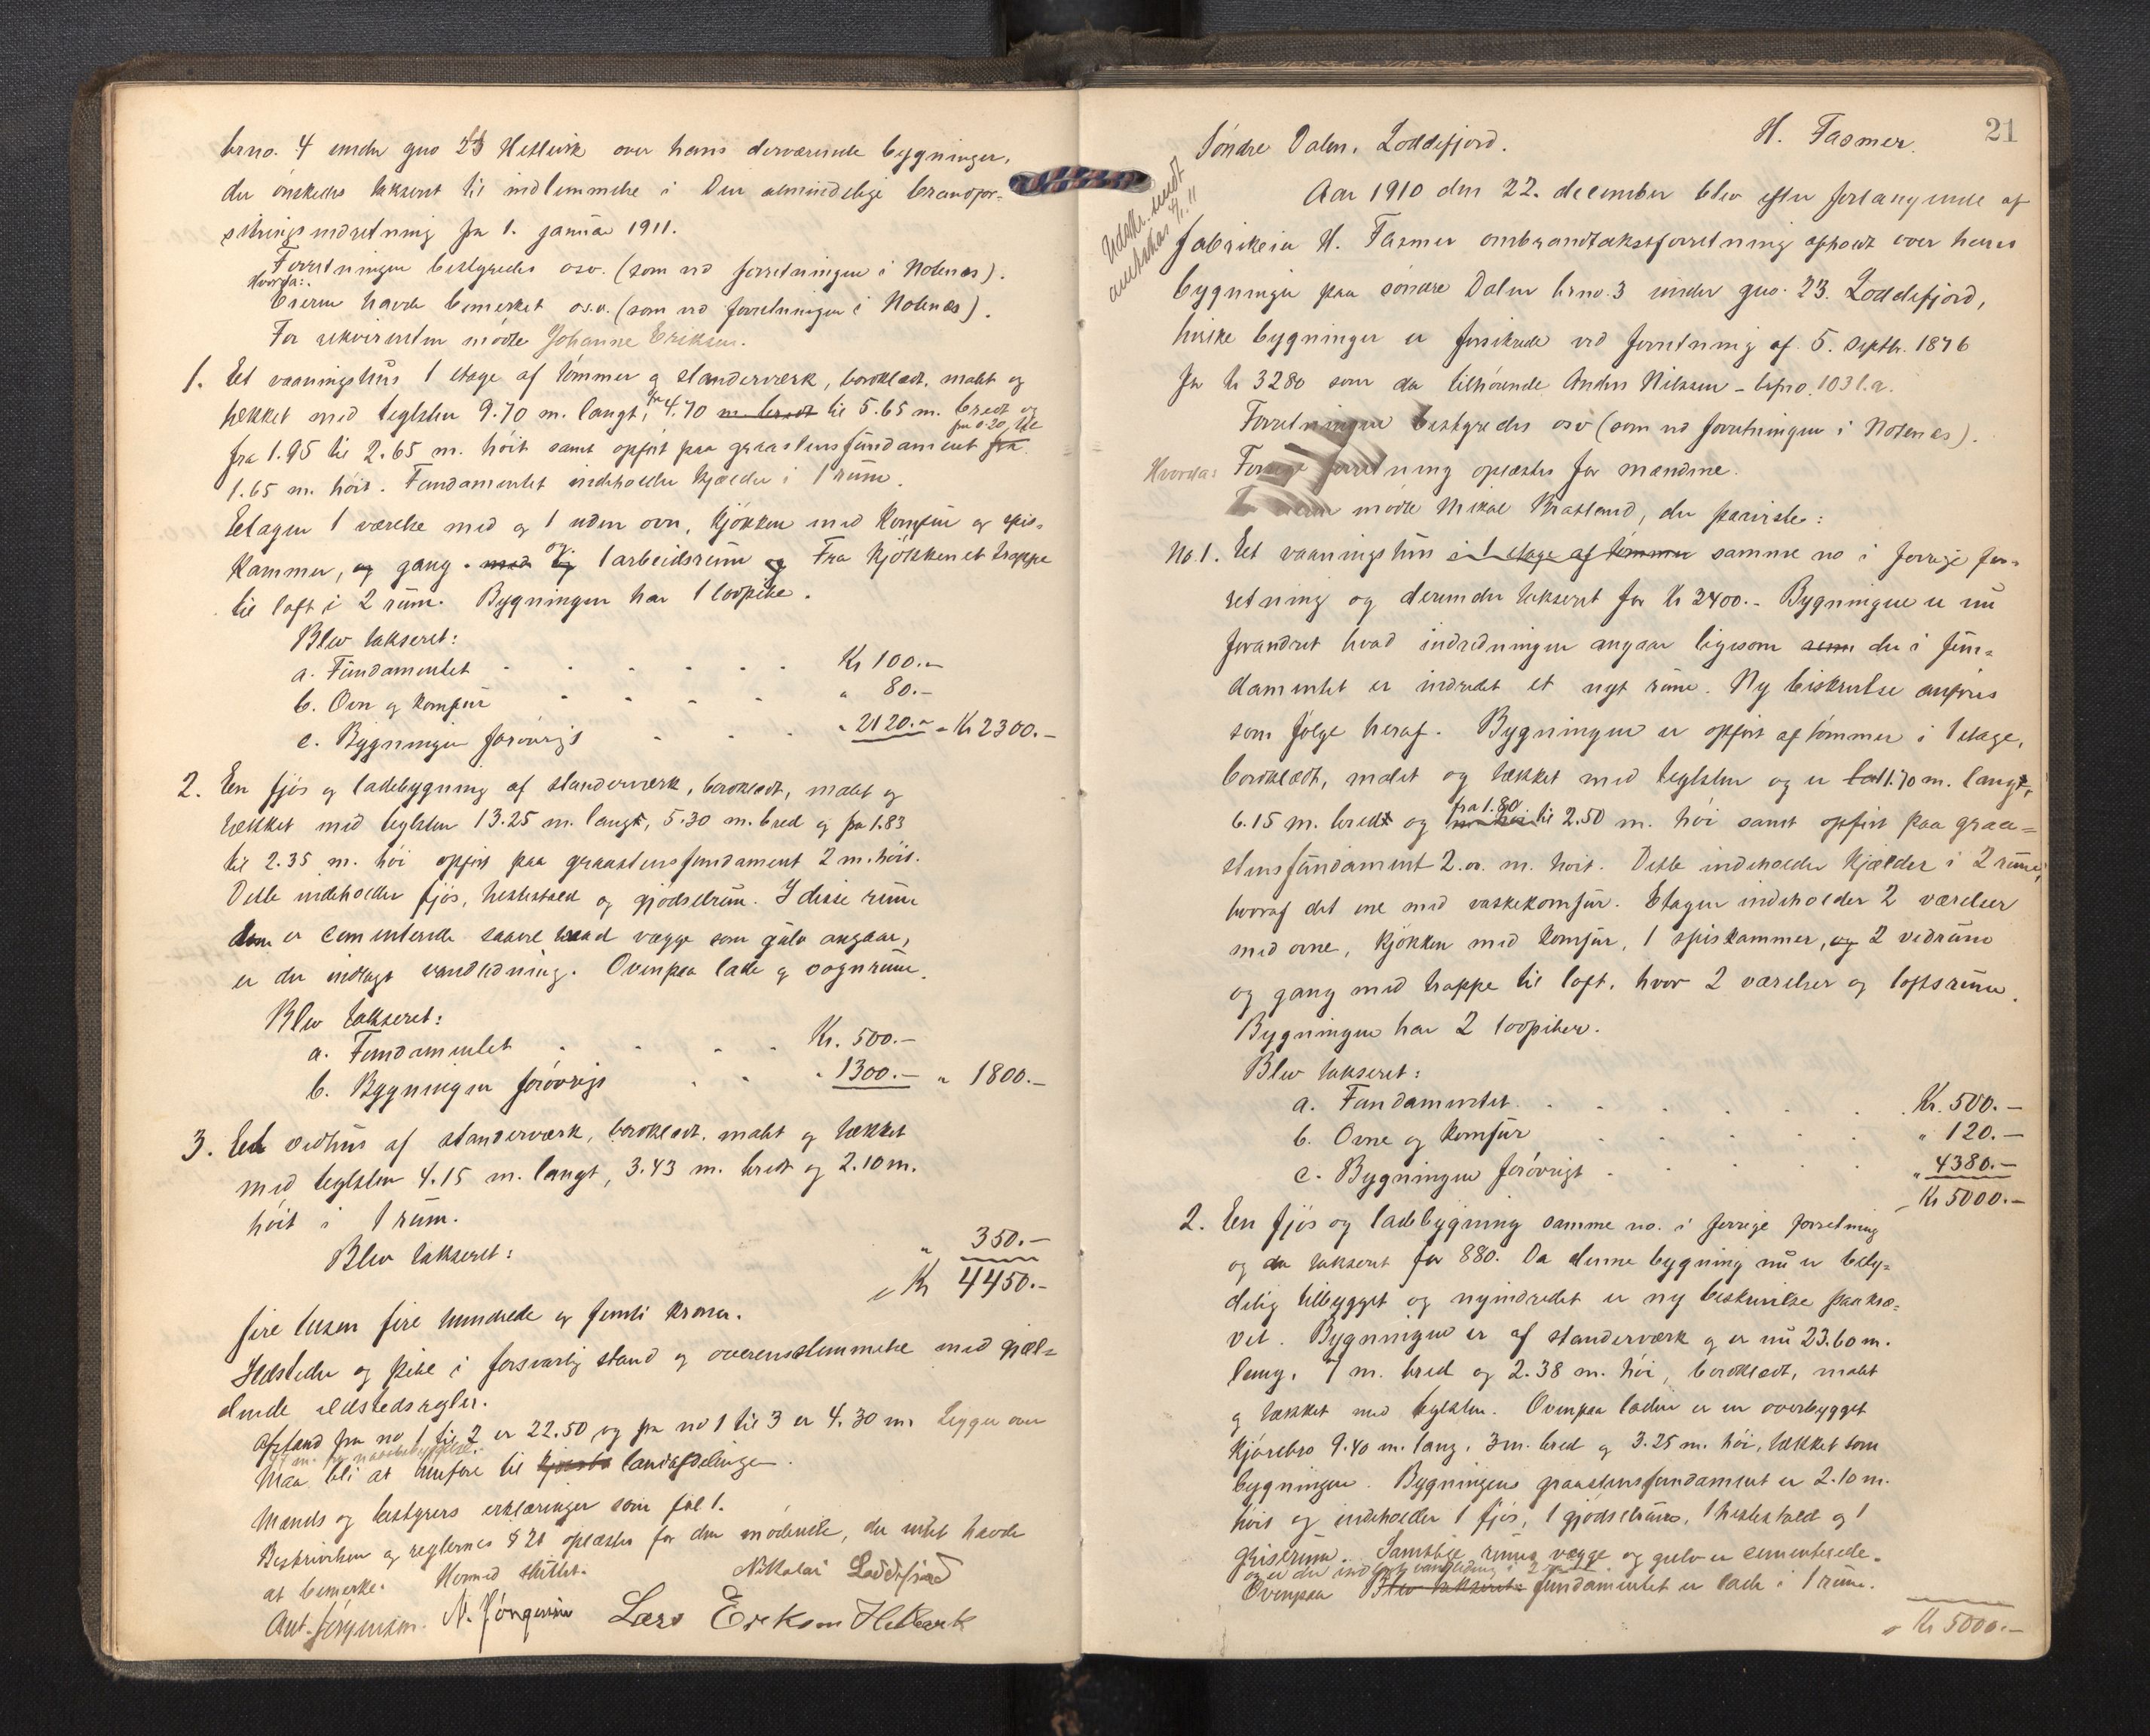 brno. 4 under gno 23 Hetlevik over hans derværende bygninger,
der ønskedes takseret til indlemmelse i Den almindelige brandfor-
sikringsindretning fra 1. januar 1911.
Forretningen bestyredes osv. (som ved forretningen i Notenæs).
Hvorda:
Eieren havde bemerket os.v. (som ved forretningen i Notenæs).
For rekvirenten mødte Johanne Eriksen.
1. Et vaaningshus 1 etage af tømmer og standerværk, bordklædt, malt og
tækket med teglsten 9.70 m. langt, fra 4.70 m. bredt til 5.65 m. bredt og
fra 1.95 til 2.65 m. høit samt opført paa graastensfundament fra fra 0.20 til
1.65 m. høit. Fundamentet indeholder kjælder i 1 rum.
Etagen 1 værelse med og 1 uden ovn, kjøkken med komfur og spis-
kammer, og gang. med og 1 arbeidsrum og Fra kjøkkenet trappe
til loft i 2 rum. Bygningen har 1 loopibe.
Blev takseret:
a. Fundamentet . . . . . . Kr 100.-
b. Ovn og komfur . . . . " 80.-
c. Bygningen forøvrigt . . . " 2120.- = Kr 2300.-
2. En fjøs og ladebygning af standerværk, bordklædt, malet og
tækket med teglsten 13.25 m. langt, 5.30 m. bred og fra 1.83
til 2.35 m. høi opført paa graastensfundament 2 m. høit.
Dette indeholder fjøs, hestestald og gjødselrum. I disse rum
som er cementerede saavel hvad vægge som gulv angaar,
er der indlagt vandledning. Ovenpaa lade og vognrum.
Blev takseret:
a. Fundamentet . . . . Kr. 500.-
b. Bygningen forøvrigt . . . " 1300.- " 1800.-
3. Et vedhus af standerværk, bordklædt, malet og tækket
med teglsten 4.15 m. langt, 3.43 m. bredt og 2.10 m.
høit i 1 rum.
Blev takseret: " 350.-
Kr 4450.-
fire tusen fire hundrede og femti kroner.
Ildsteder og pibe i forsvarlig stand og overensstemmelse med gjæl-
dende ildstedsregler.
Afstand fra no 1 til 2 er 22.50 og fra no 1 til 3 er 4.30 m. Ligger over
m. fra nabobebyggelse.
Maa bli at henføre til landafdelingen.
Mænds og bestyrers erklæringer som fol 1.
Beskrivelsen og reglernes § 21 oplæstes for den mødende, der intet havde
at bemerke. Hermed sluttet. Nikolai Loddefjord
Ant. Jørgensen. N. Jørgensen Lars Eriksen Hetlevik
21
Søndre Dalen, Loddefjord. H. Fasmer.
Udskr. sendt
amtskas 4/1. 11
Aar 1910 den 22. december blev efter forlangende af
fabrikeier H. Fasmer ombrandtakstforretning afholdt over hans
bygninger paa søndre Dalen brno. 3 under gno. 23. Loddefjord,
hvilke bygninger er forsikrede ved forretning af 5. septbr. 1896
for kr 3280 som da tilhørende Anders Nilssen - bfno. 1031.a.
Forretningen bestyredes osv (som ved forretningen i Notenæs).
Hvorda: Forrige forretning oplæstes for mændene.
mødte Mikal Matland, der paaviste:
No. 1. Et vaaningshus i 1 etage af tømmer samme no i forrige for-
retning og derunder takseret for kr 2400.- Bygningen er nu
forandret hvad indredningen angaar ligesom som der i fun-
damentet er indredet et nyt rum. Ny beskrivelse anføres
som følge heraf. Bygningen er opført af tømmer i 1 etage,
bordklædt, malet og tækket med teglsten og er 11.70 m. langt,
6.15 m. bredt og fra 1.80 til 2.50 m. høi samt opført paa graa-
stensfundament 2.00 m. høit. Dette indeholder kjælder i 2 rum,
hvoraf det ene med vaskekomfur. Etagen indeholder 2 værelser
med ovne, kjøkken med komfur, 1 spiskammer, og 2 vedrum
og gang med trappe til loft, hvor 2 værelser og loftsrum.
Bygningen har 2 loopiber.
Blev takseret:
a. Fundamentet . . . . . . Kr. 500.-
b. Ovne og komfur . . . . " 120.-
c. Bygningen forøvrigt . . . . " 4380.-
Kr 5000.-
2. En fjøs og ladebygning samme no. i forrige forretning
og da takseret for 880. Da denne bygning nu er bety-
delig tilbygget og nyindredet er ny beskrivelse paakræ-
vet. Bygningen er af standerværk og er nu 23.60 m.
lang, 7 m. bred og 2.38 m. høi, bordklædt, malet
og tækket med teglsten. Ovenpaa laden er en overbygget
kjørebro 9.40 m. lang, 3 m. bred og 3.25 m. høi, tækket som
bygningen. Bygningens graastensfundament er 2.10 m.
høit og indeholder 1 fjøs, 1 gjødselrum, 1 hestestald og 1
griserum. Samtlige rums vægge og gulv er cementerede.
og er der indlagt vandledning i 2 rum.
Ovenpaa Blev takseret: fundamentet er lade i 1 rum.
Kr 5000.-